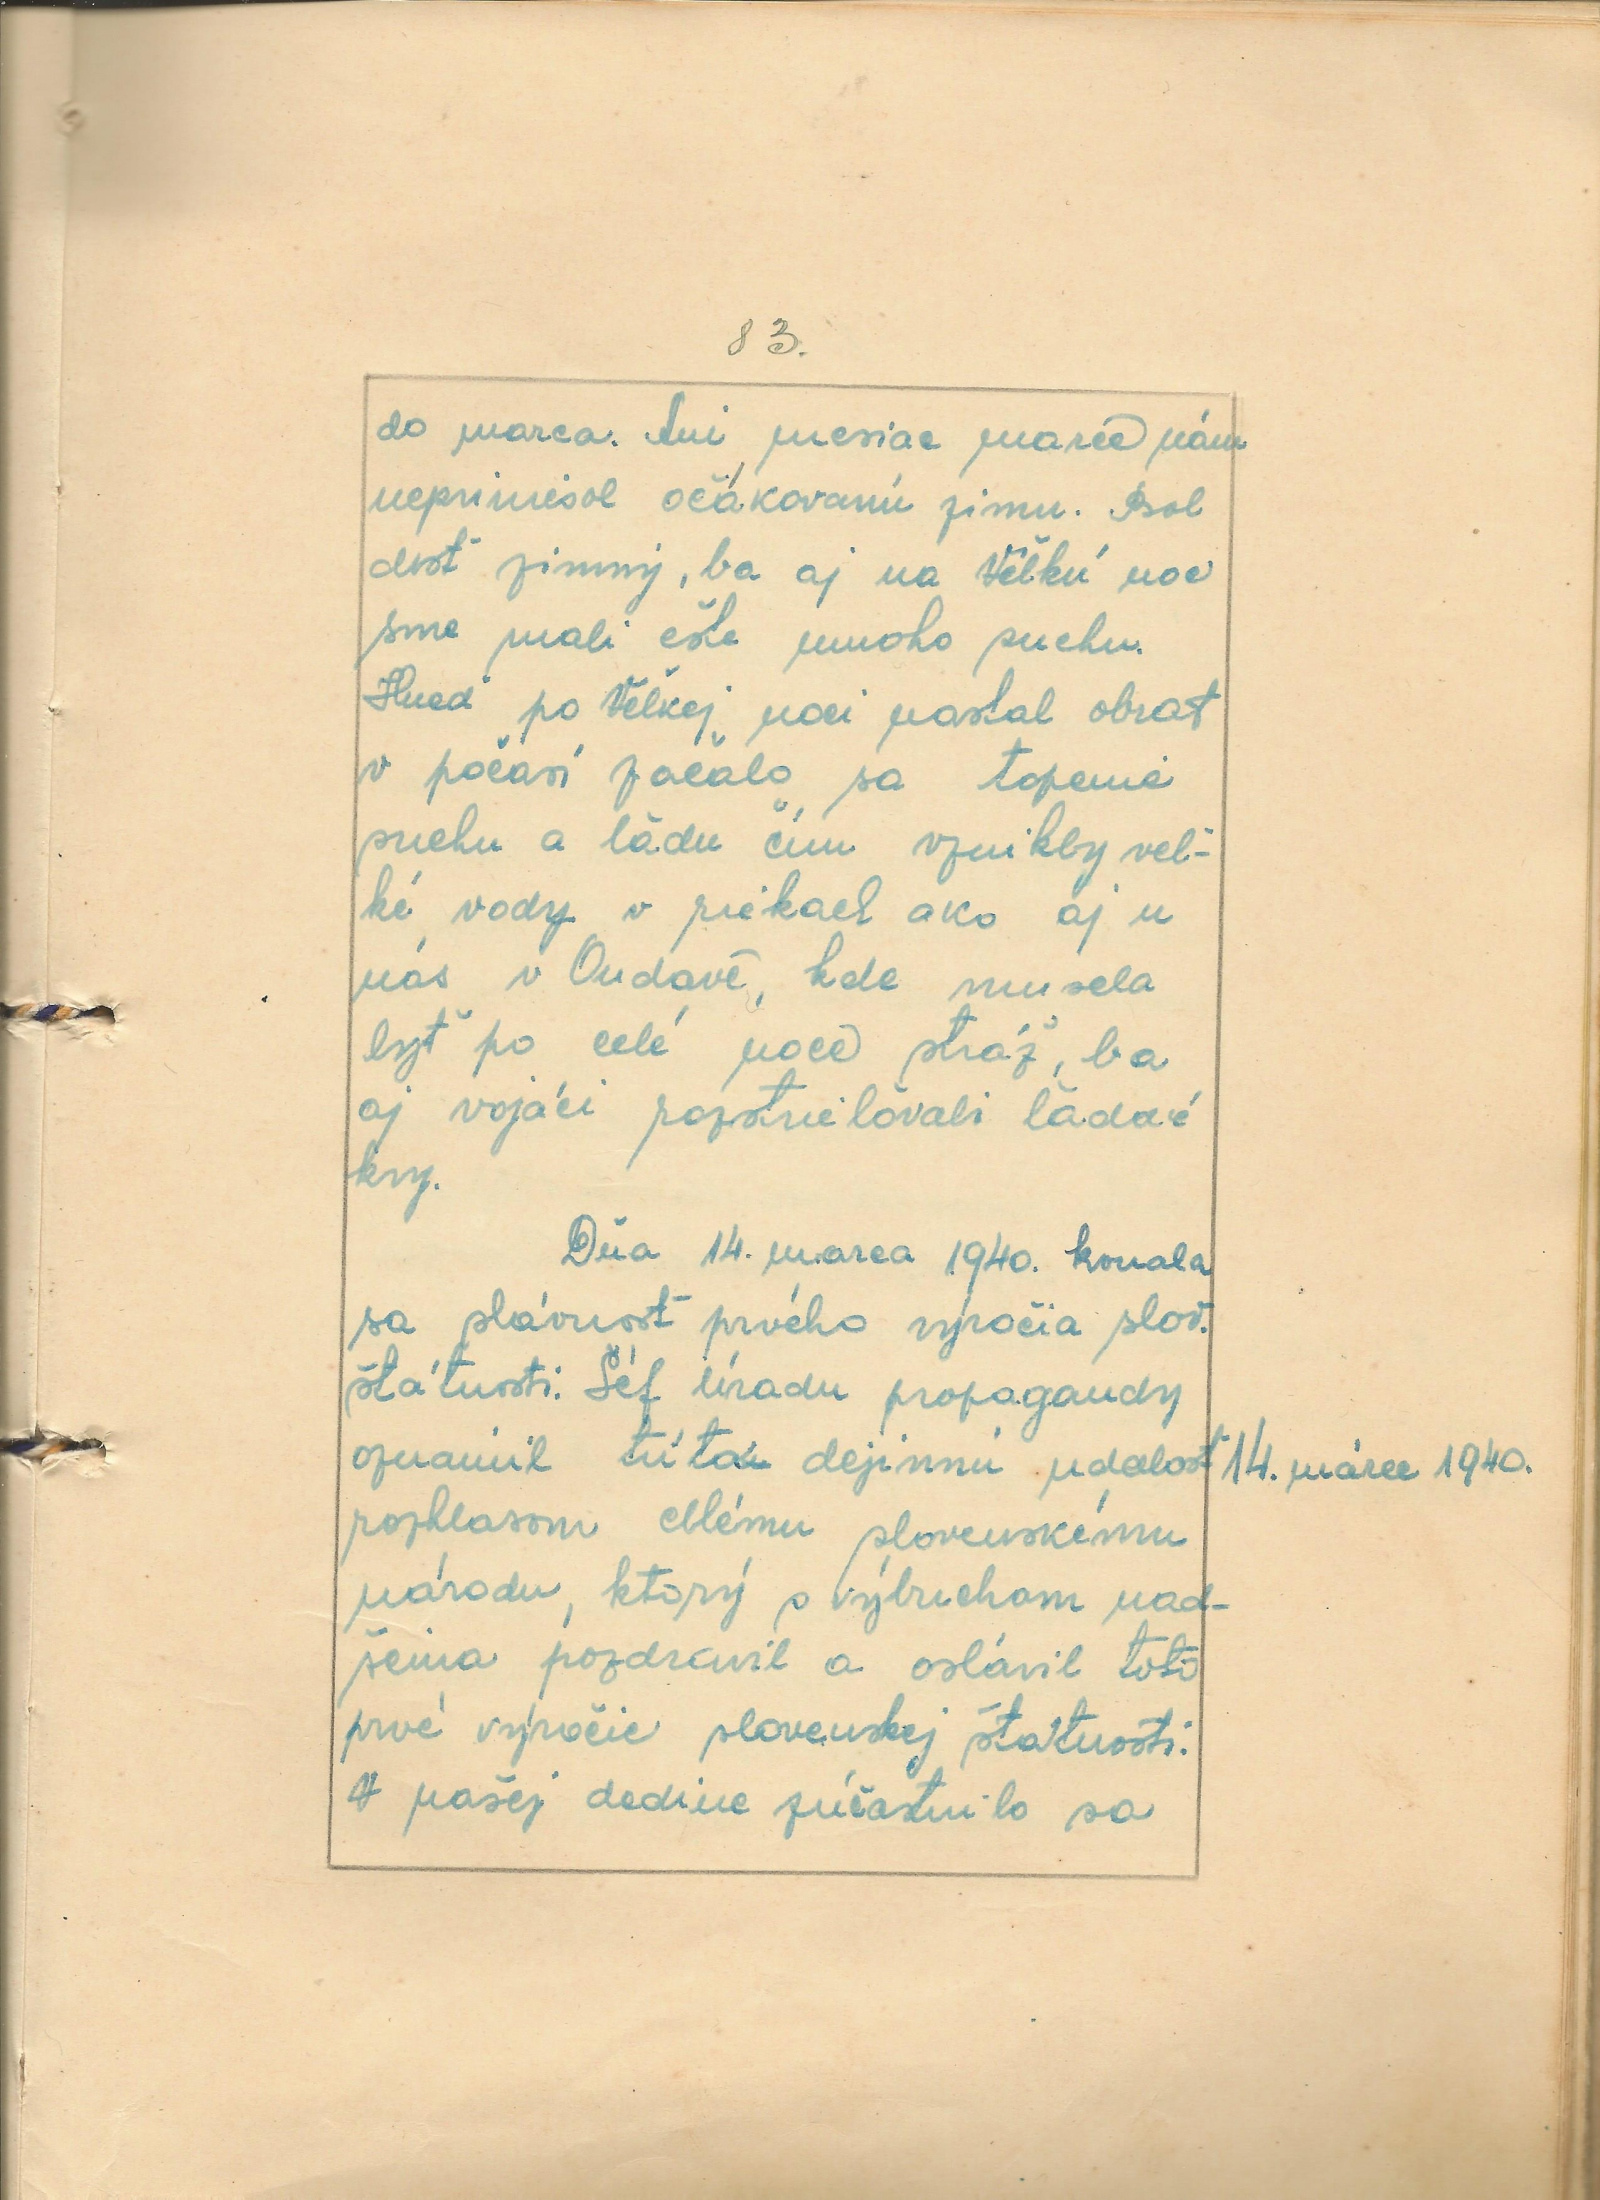 83.
do marca. Ani mesiac marec nám
nepriniesol očákovanú zimu. Bol
dosť zimný, ba aj na Veľkú noc
sme mali ešte mnoho snehu.
Hneď po Veľkej noci nastal obrat
v počasí začalo sa topenie
snehu a ľadu čím vznikly veľ-
ké vody v riekach ako aj u
nás v Ondave, kde musela
byť po celé noce stráž, ba
aj vojáci rozstrieľovali ľadové
kry.
Dňa 14. marca 1940. konala
sa slávnosť prvého výročia slov.
štátnosti. Šéf úradu propagandy
oznámil túto dejinnú udalosť
14. márec 1940.
rozhlasom celému slovenskému
národu, ktorý s výbuchom nad-
šenia pozdravil a oslávil toto
prvé výročie slovenskej štátnosti.
V našej dedine zúčastnilo sa